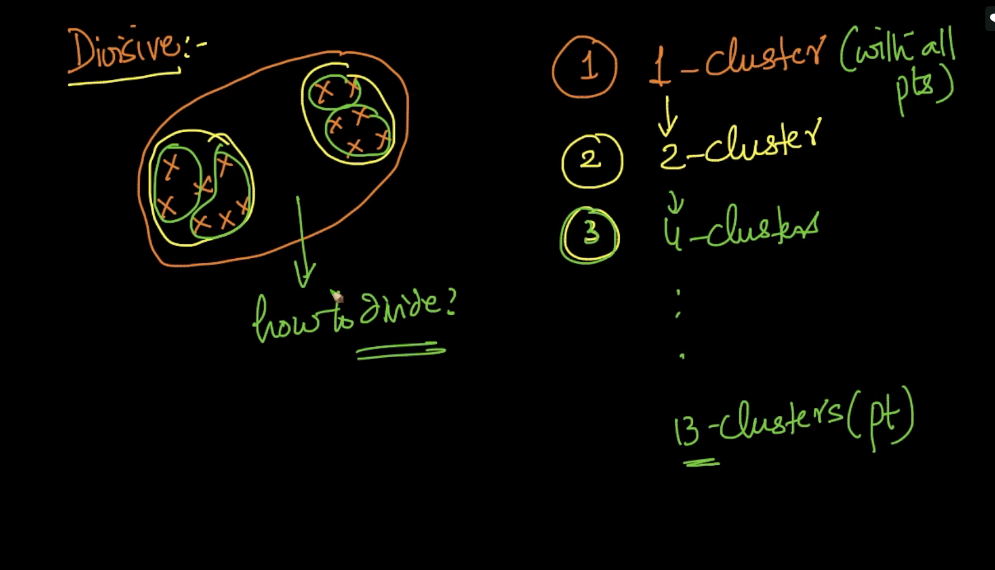 Divisive:-
how to divide?
1 1-cluster (with all pts)
2 2-cluster
3 4-clusters
:
.
13-clusters (pt)